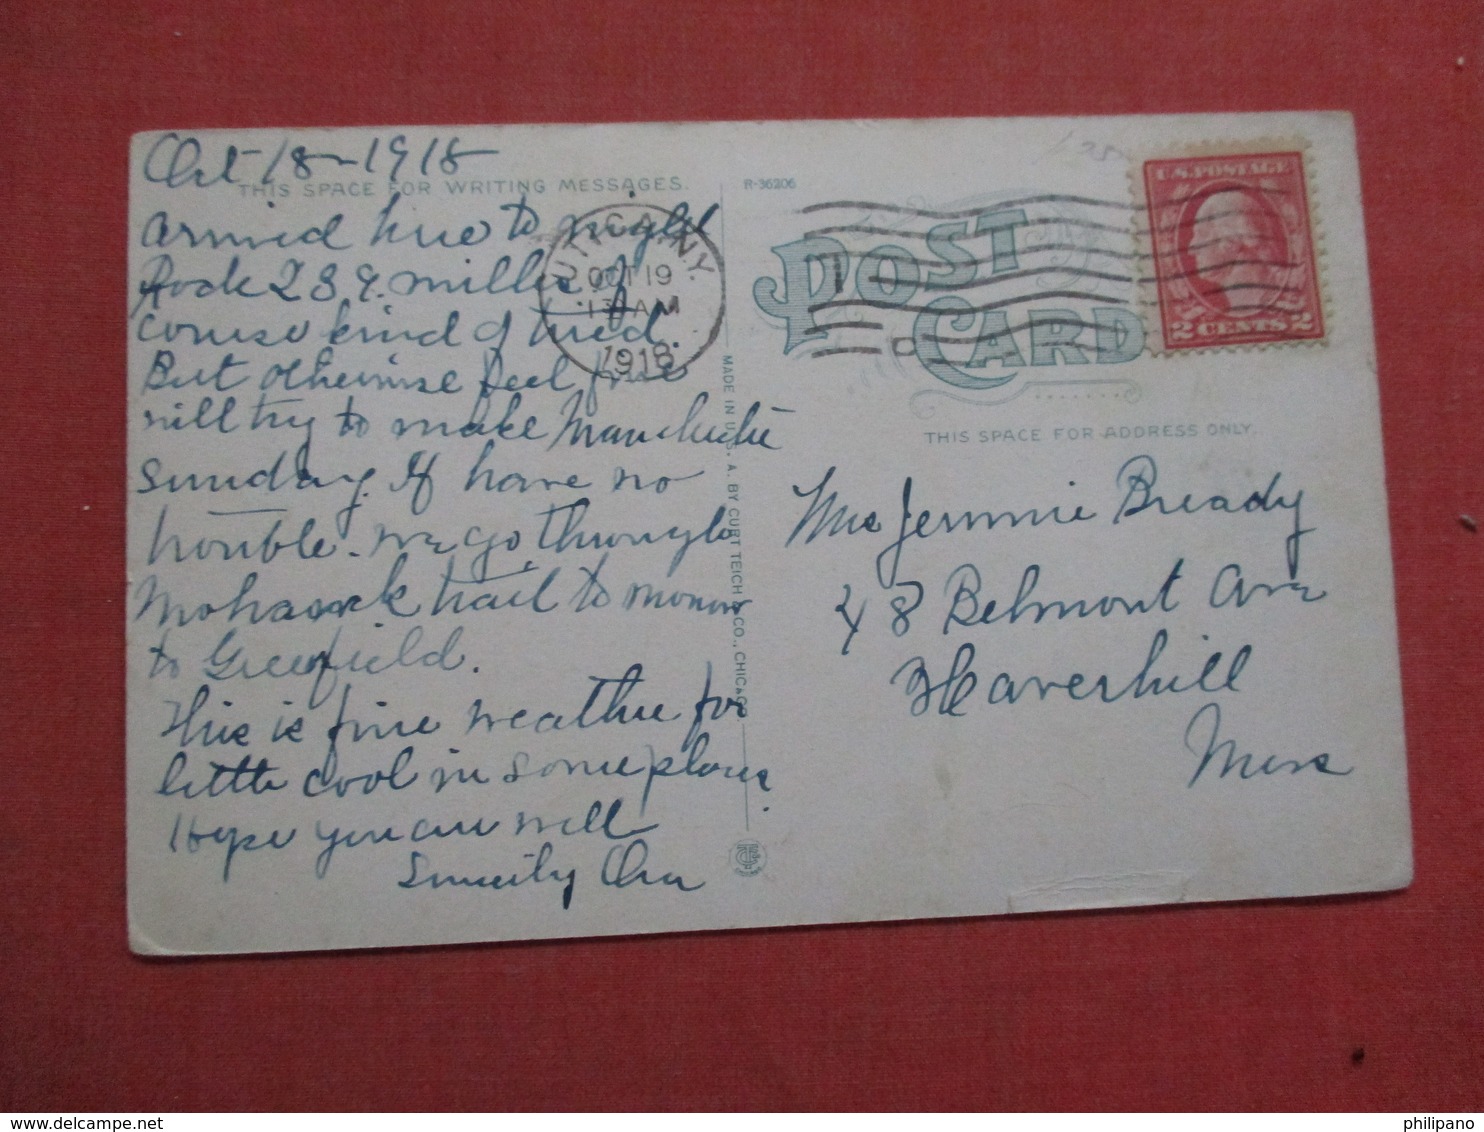 Oct 18-1918
THIS SPACE FOR WRITING MESSAGES.
arrived here to night
289. miles of
course kind of tired.
But otherwise feel fine
will try to make Manchester
Sunday. If have no
trouble. we go through
Mohawk trail to morrow
to Greenfield.
This is fine weather for
little cool in some places.
Hope you are well
Sincerely
R-36206
UTICA, N.Y.
OCT 19
AM
1918
POST
CARD
U.S. POSTAGE
2 CENTS 2
THIS SPACE FOR ADDRESS ONLY.
MADE IN U.S.A. BY CURT TEICH & CO., CHICAGO
Mrs Jennie Bready
48 Belmont Ave
Haverhill
Mass
philipano